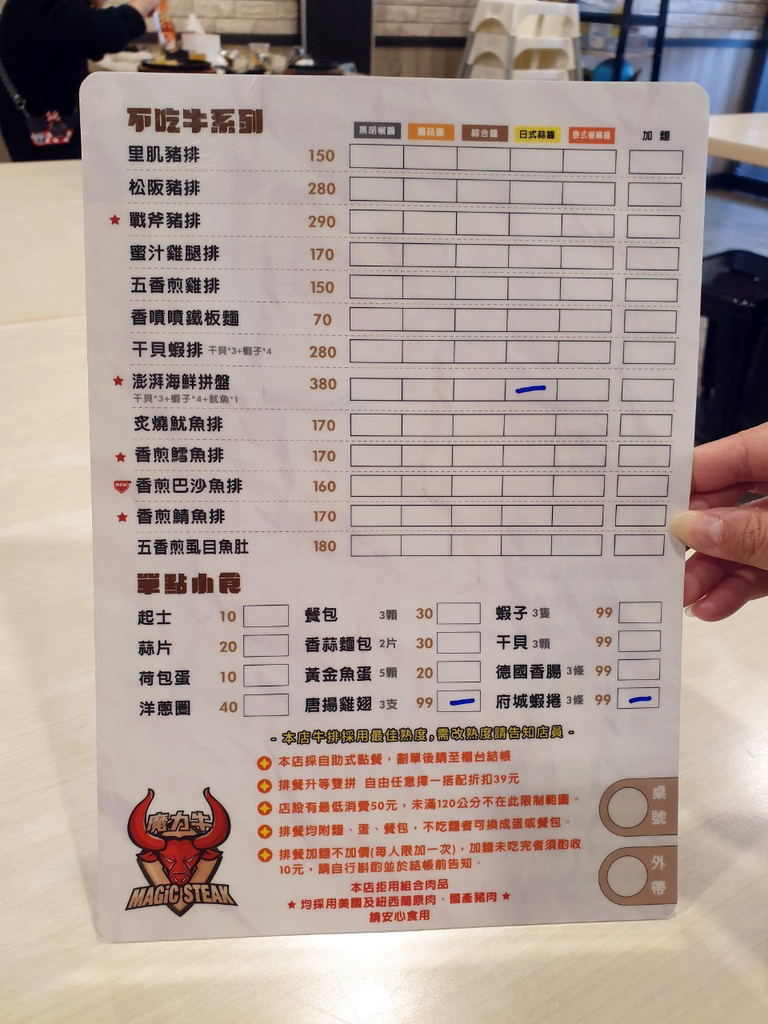 不吃牛系列
黑胡椒醬 蘑菇醬 綜合醬 日式蒜醬 泰式椒麻醬 加麵
里肌豬排 150
松阪豬排 280
戰斧豬排 290
蜜汁雞腿排 170
五香煎雞排 150
香噴噴鐵板麵 70
干貝蝦排 干貝*3+蝦子*4 280
澎湃海鮮拼盤 380
干貝*3+蝦子*4+魷魚*1
炙燒魷魚排 170
香煎鱈魚排 170
NEW! 香煎巴沙魚排 160
香煎鯖魚排 170
五香煎虱目魚肚 180
單點小食
起士 10 餐包 3顆 30 蝦子 3隻 99
蒜片 20 香蒜麵包 2片 30 干貝 3顆 99
荷包蛋 10 黃金魚蛋 5顆 20 德國香腸 3條 99
洋蔥圈 40 唐揚雞翅 3支 99 府城蝦捲 3條 99
- 本店牛排採用最佳熟度,需改熟度請告知店員 -
本店採自助式點餐，劃單後請至櫃台結帳
排餐升等雙拼 自由任意擇一搭配折扣39元
店設有最低消費50元，未滿120公分不在此限制範圍。
排餐均附麵、蛋、餐包，不吃麵者可換成蛋或餐包。
排餐加麵不加價(每人限加一次)，加麵未吃完者須酌收
10元，請自行斟酌並於結帳前告知。
本店拒用組合肉品
★ 均採用美國及紐西蘭原肉、國產豬肉 ★
請安心食用
魔力牛
MAGIC STEAK
桌號
外帶